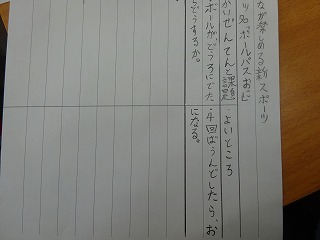 なが楽しめる新スポーツ
ツ名「ボールパスおに」
かいぜんてんと課題
ボールがどうろにでた
らどうするか。
・よいところ
・4回ばうんどしたら、お
になる。